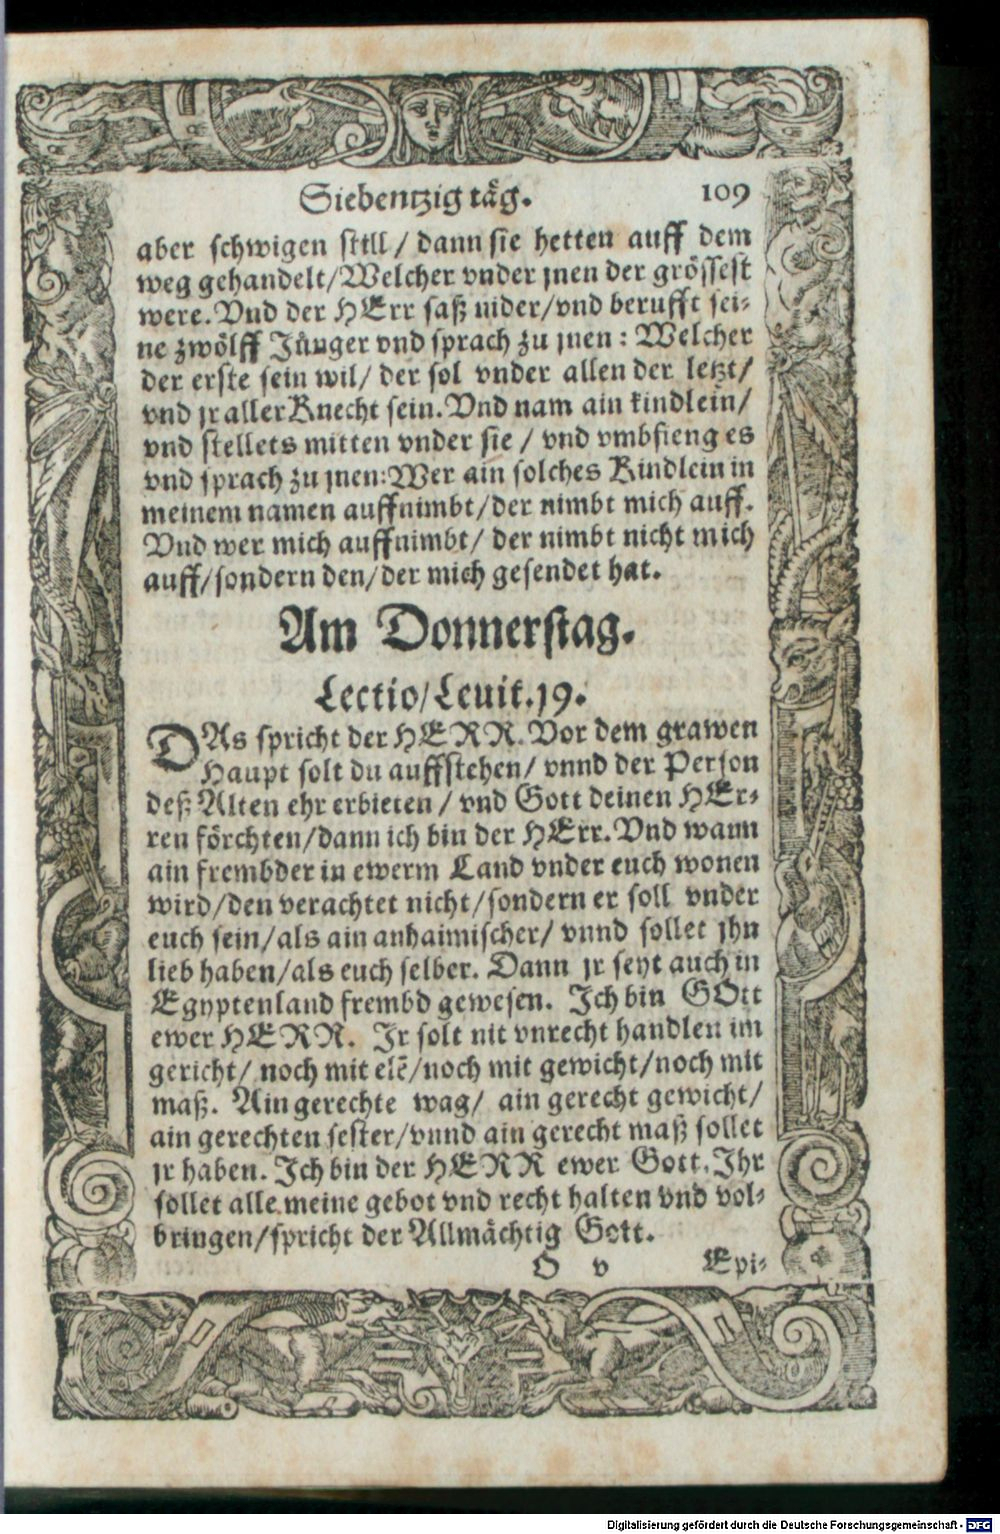 Siebentzig täg. 109
aber schwigen still / dann sie hetten auff dem
weg gehandelt/Welcher vnder jnen der grössest
were. Vnd der HErr saß nider/vnd berufft sei-
ne zwölff Jünger vnd sprach zu jnen : Welcher
der erste sein wil/ der sol vnder allen der letzt/
vnd jr aller Knecht sein. Vnd nam ain kindlein/
vnd stellets mitten vnder sie / vnd vmbfieng es
vnd sprach zu jnen: Wer ain solches Kindlein in
meinem namen auffnimbt/der nimbt mich auff.
Vnd wer mich auffnimbt/ der nimbt nicht mich
auff/sondern den/der mich gesendet hat.
Am Donnerstag.
Lectio/Leuit.19.
DAs spricht der HERR. Vor dem grawen
Haupt solt du auffstehen/ vnnd der Person
deß Alten ehr erbieten / vnd Gott deinen HEr-
ren förchten/dann ich bin der HErr. Vnd wann
ain frembder in ewerm Land vnder euch wonen
wird/den verachtet nicht/sondern er soll vnder
euch sein/als ain anhaimischer/ vnnd sollet jhn
lieb haben/als euch selber. Dann jr seyt auch in
Egyptenland frembd gewesen. Ich bin GOtt
ewer HERR. Ir solt nit vnrecht handlen im
gericht/ noch mit elẽ/noch mit gewicht/noch mit
maß. Ain gerechte wag/ ain gerecht gewicht/
ain gerechten sester/vnnd ain gerecht maß sollet
jr haben. Ich bin der HERR ewer Gott. Ihr
sollet alle meine gebot vnd recht halten vnd vol-
bringen/spricht der Allmächtig Gott.
O v Epi-
Digitalisierung gefördert durch die Deutsche Forschungsgemeinschaft - DFG